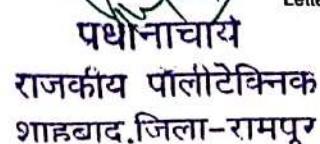 Lette
प्रधानाचार्य
राजकीय पॉलीटेक्निक
शाहबाद.जिला-रामपुर